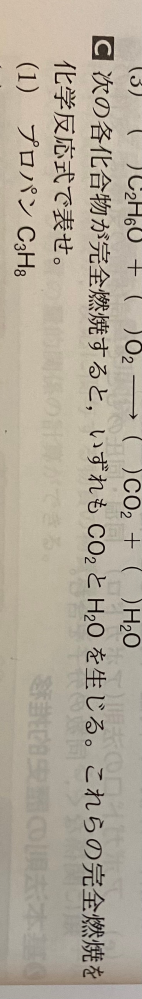 (3) ( )C₂H₆O + ( )O₂ ⟶ ( )CO₂ + ( )H₂O
C 次の各化合物が完全燃焼すると，いずれも CO₂ と H₂O を生じる。これらの完全燃焼を
化学反応式で表せ。
(1) プロパン C₃H₈